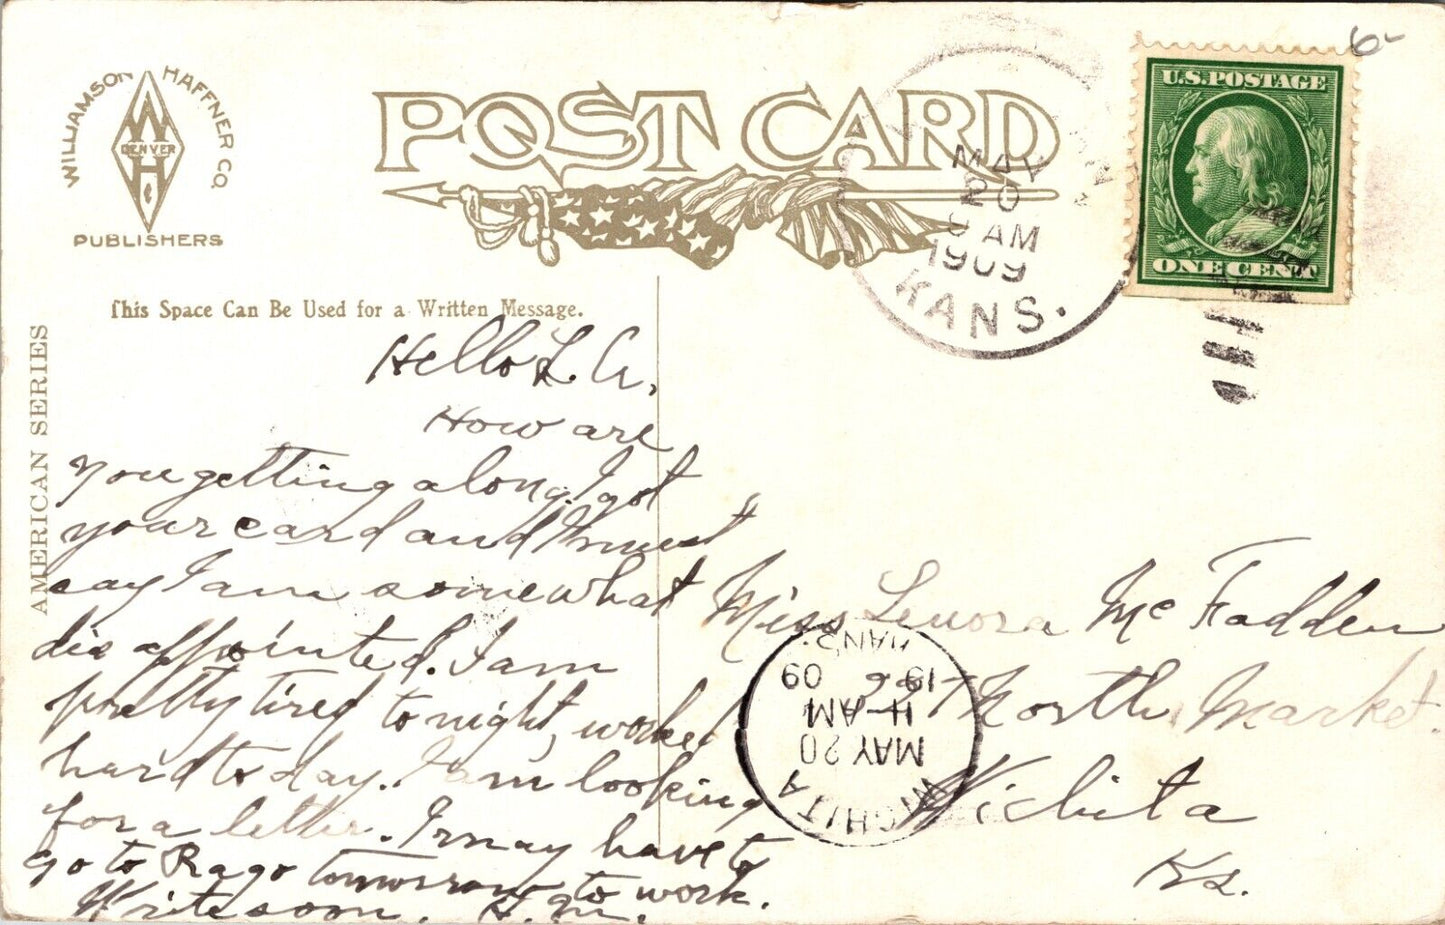 WILLIAMSON HAFFNER CO.
W
DENVER
H
&
PUBLISHERS
POST CARD
U.S. POSTAGE
ONE CENT
6-
MAY
20
AM
1909
KANS.
This Space Can Be Used for a Written Message.
AMERICAN SERIES
Hello L. A.
How are
you getting along. I got
your card and I must
say I am somewhat
disappointed. I am
pretty tired to night, worked
hard to day. I am looking
for a letter. I may have to
go to Rago tomorrow to work.
Write soon. H. M.
Miss Lenora McFadden
North Market.
Wichita
Ks.
WICHITA
MAY 20
11-AM
09
KANS.